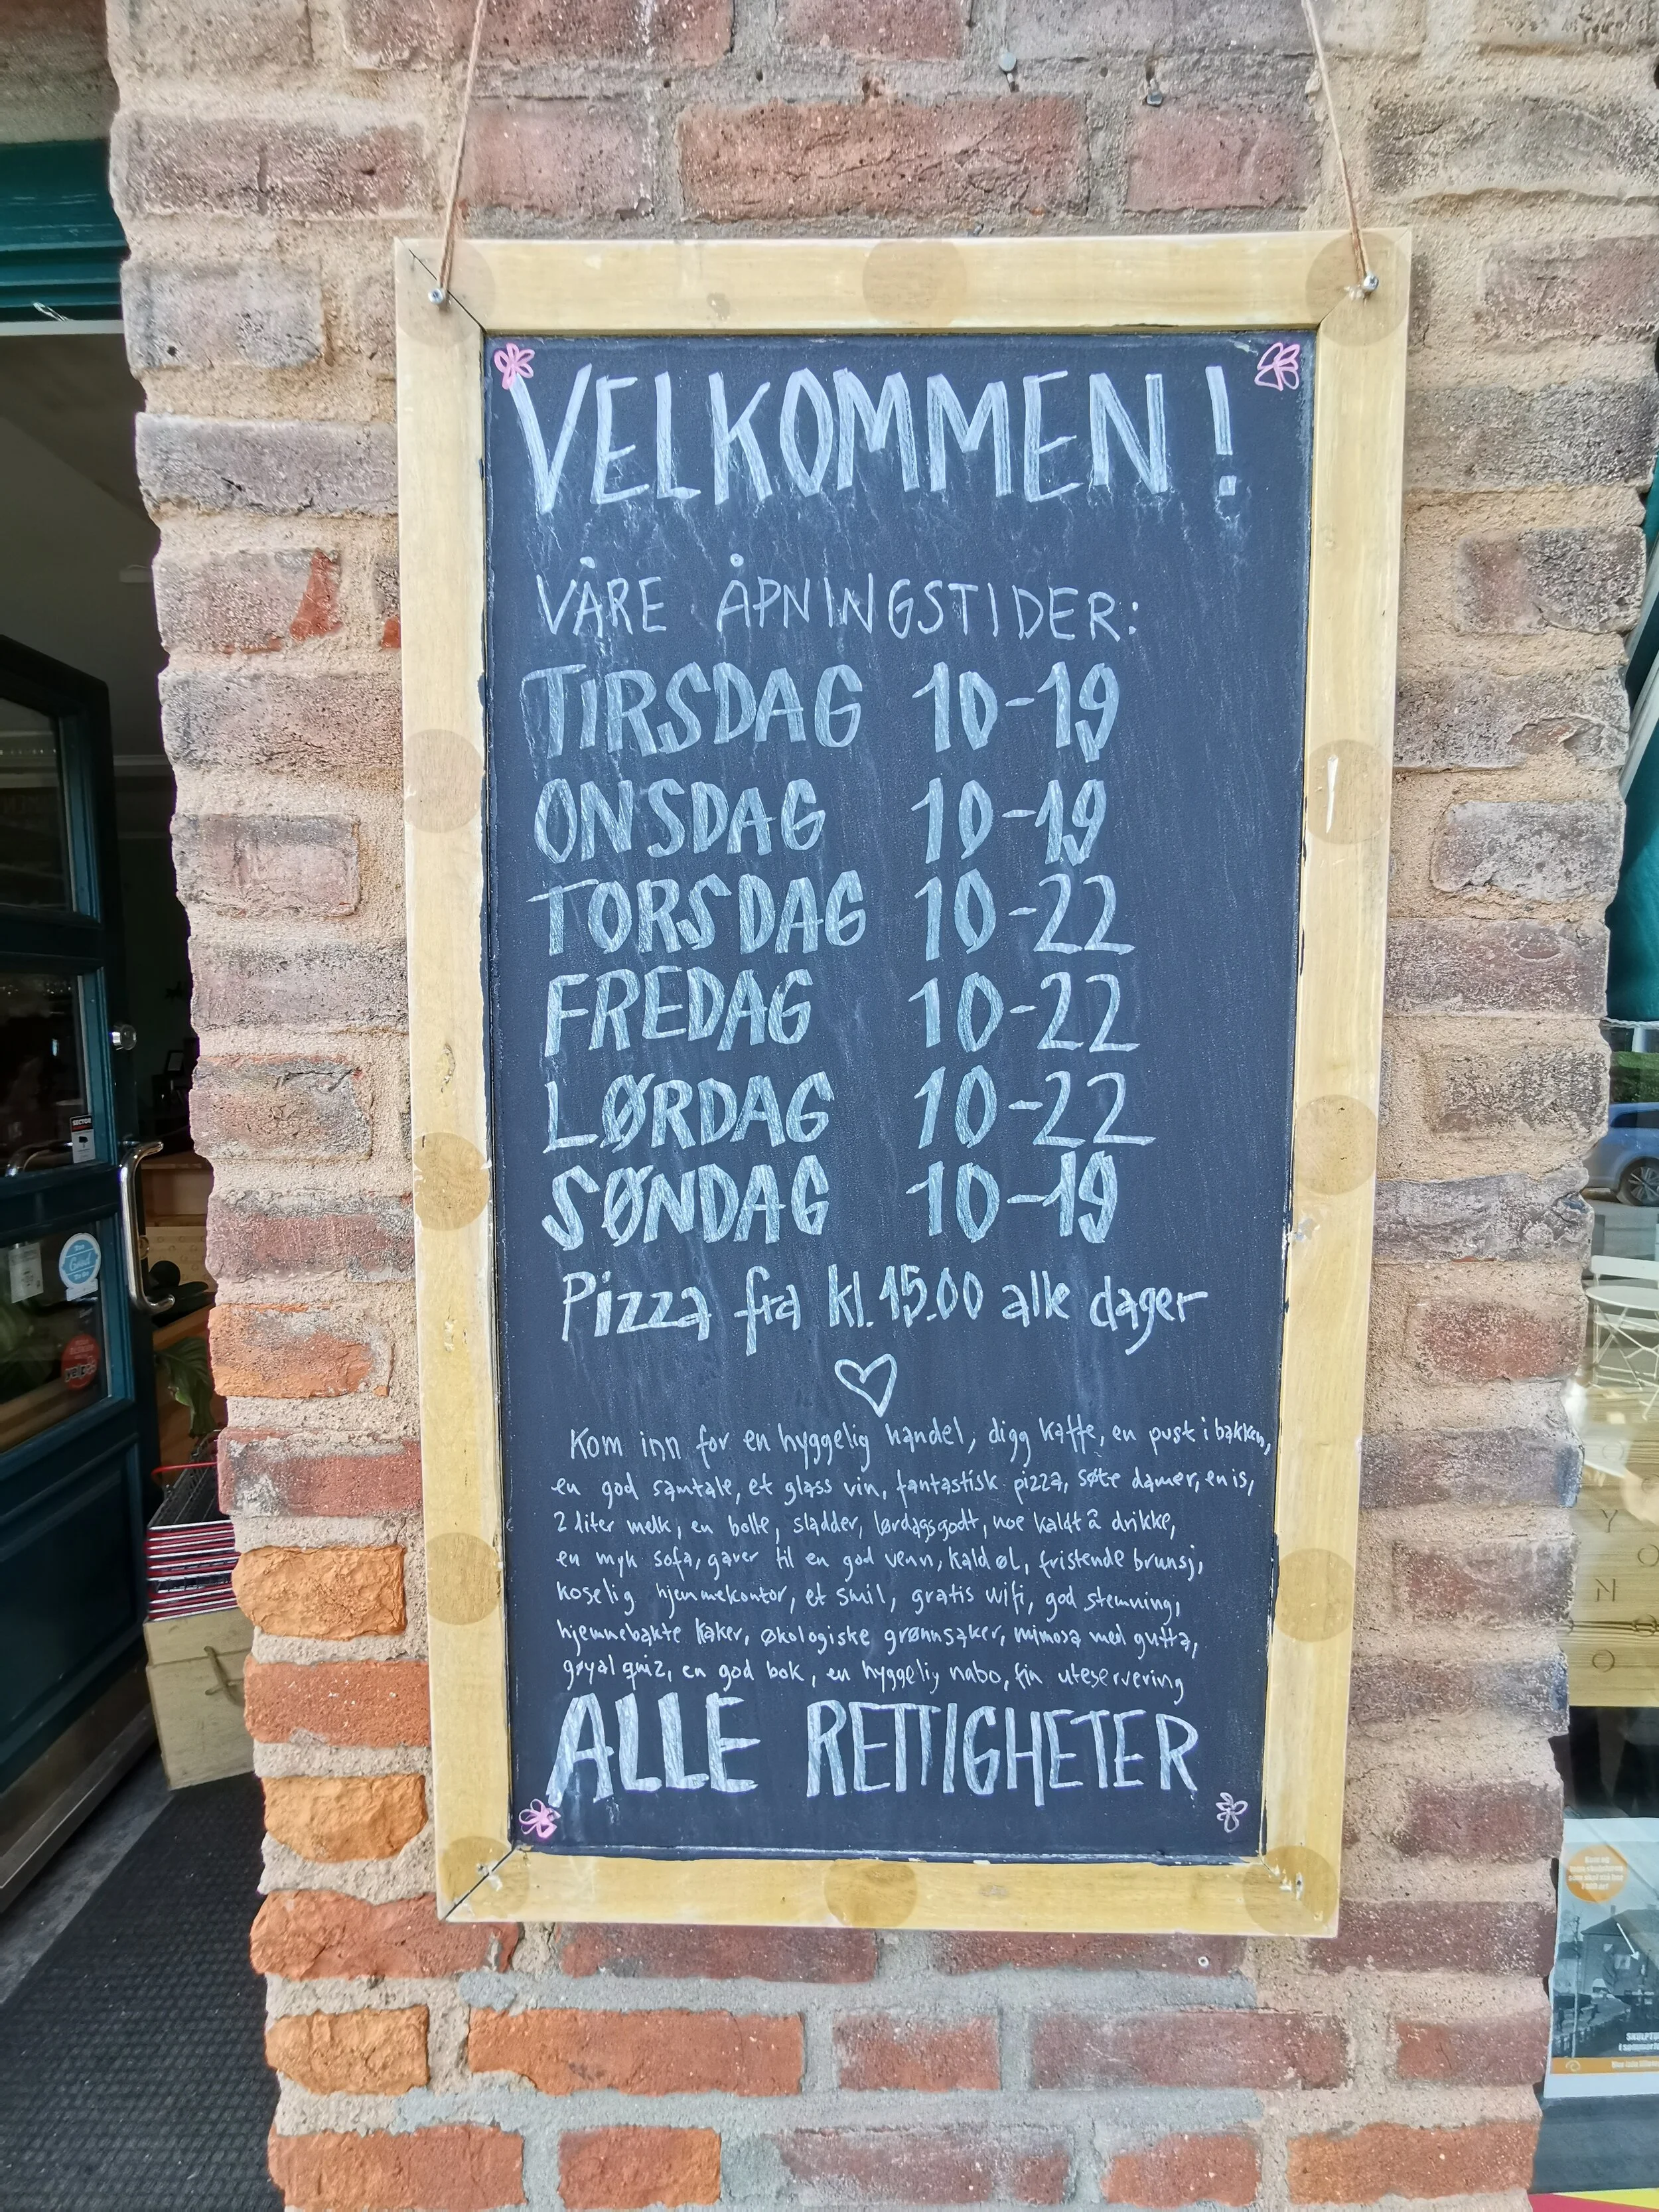 VELKOMMEN!
VÅRE ÅPNINGSTIDER:
TIRSDAG 10-19
ONSDAG 10-19
TORSDAG 10-22
FREDAG 10-22
LØRDAG 10-22
SØNDAG 10-19
Pizza fra kl. 15.00 alle dager
Kom inn for en hyggelig handel, digg kaffe, en pust i bakken,
en god samtale, et glass vin, fantastisk pizza, søte damer, en is,
2 liter melk, en bolle, sladder, lørdagsgodt, noe kaldt å drikke,
en myk sofa, gaver til en god venn, kald øl, fristende brunsj,
koselig hjemmekontor, et smil, gratis wifi, god stemning,
hjemmebakte kaker, økologiske grønnsaker, mimosa med gutta,
gøyal quiz, en god bok, en hyggelig nabo, fin uteservering
ALLE RETTIGHETER
SECTOR
Y
O
N
O